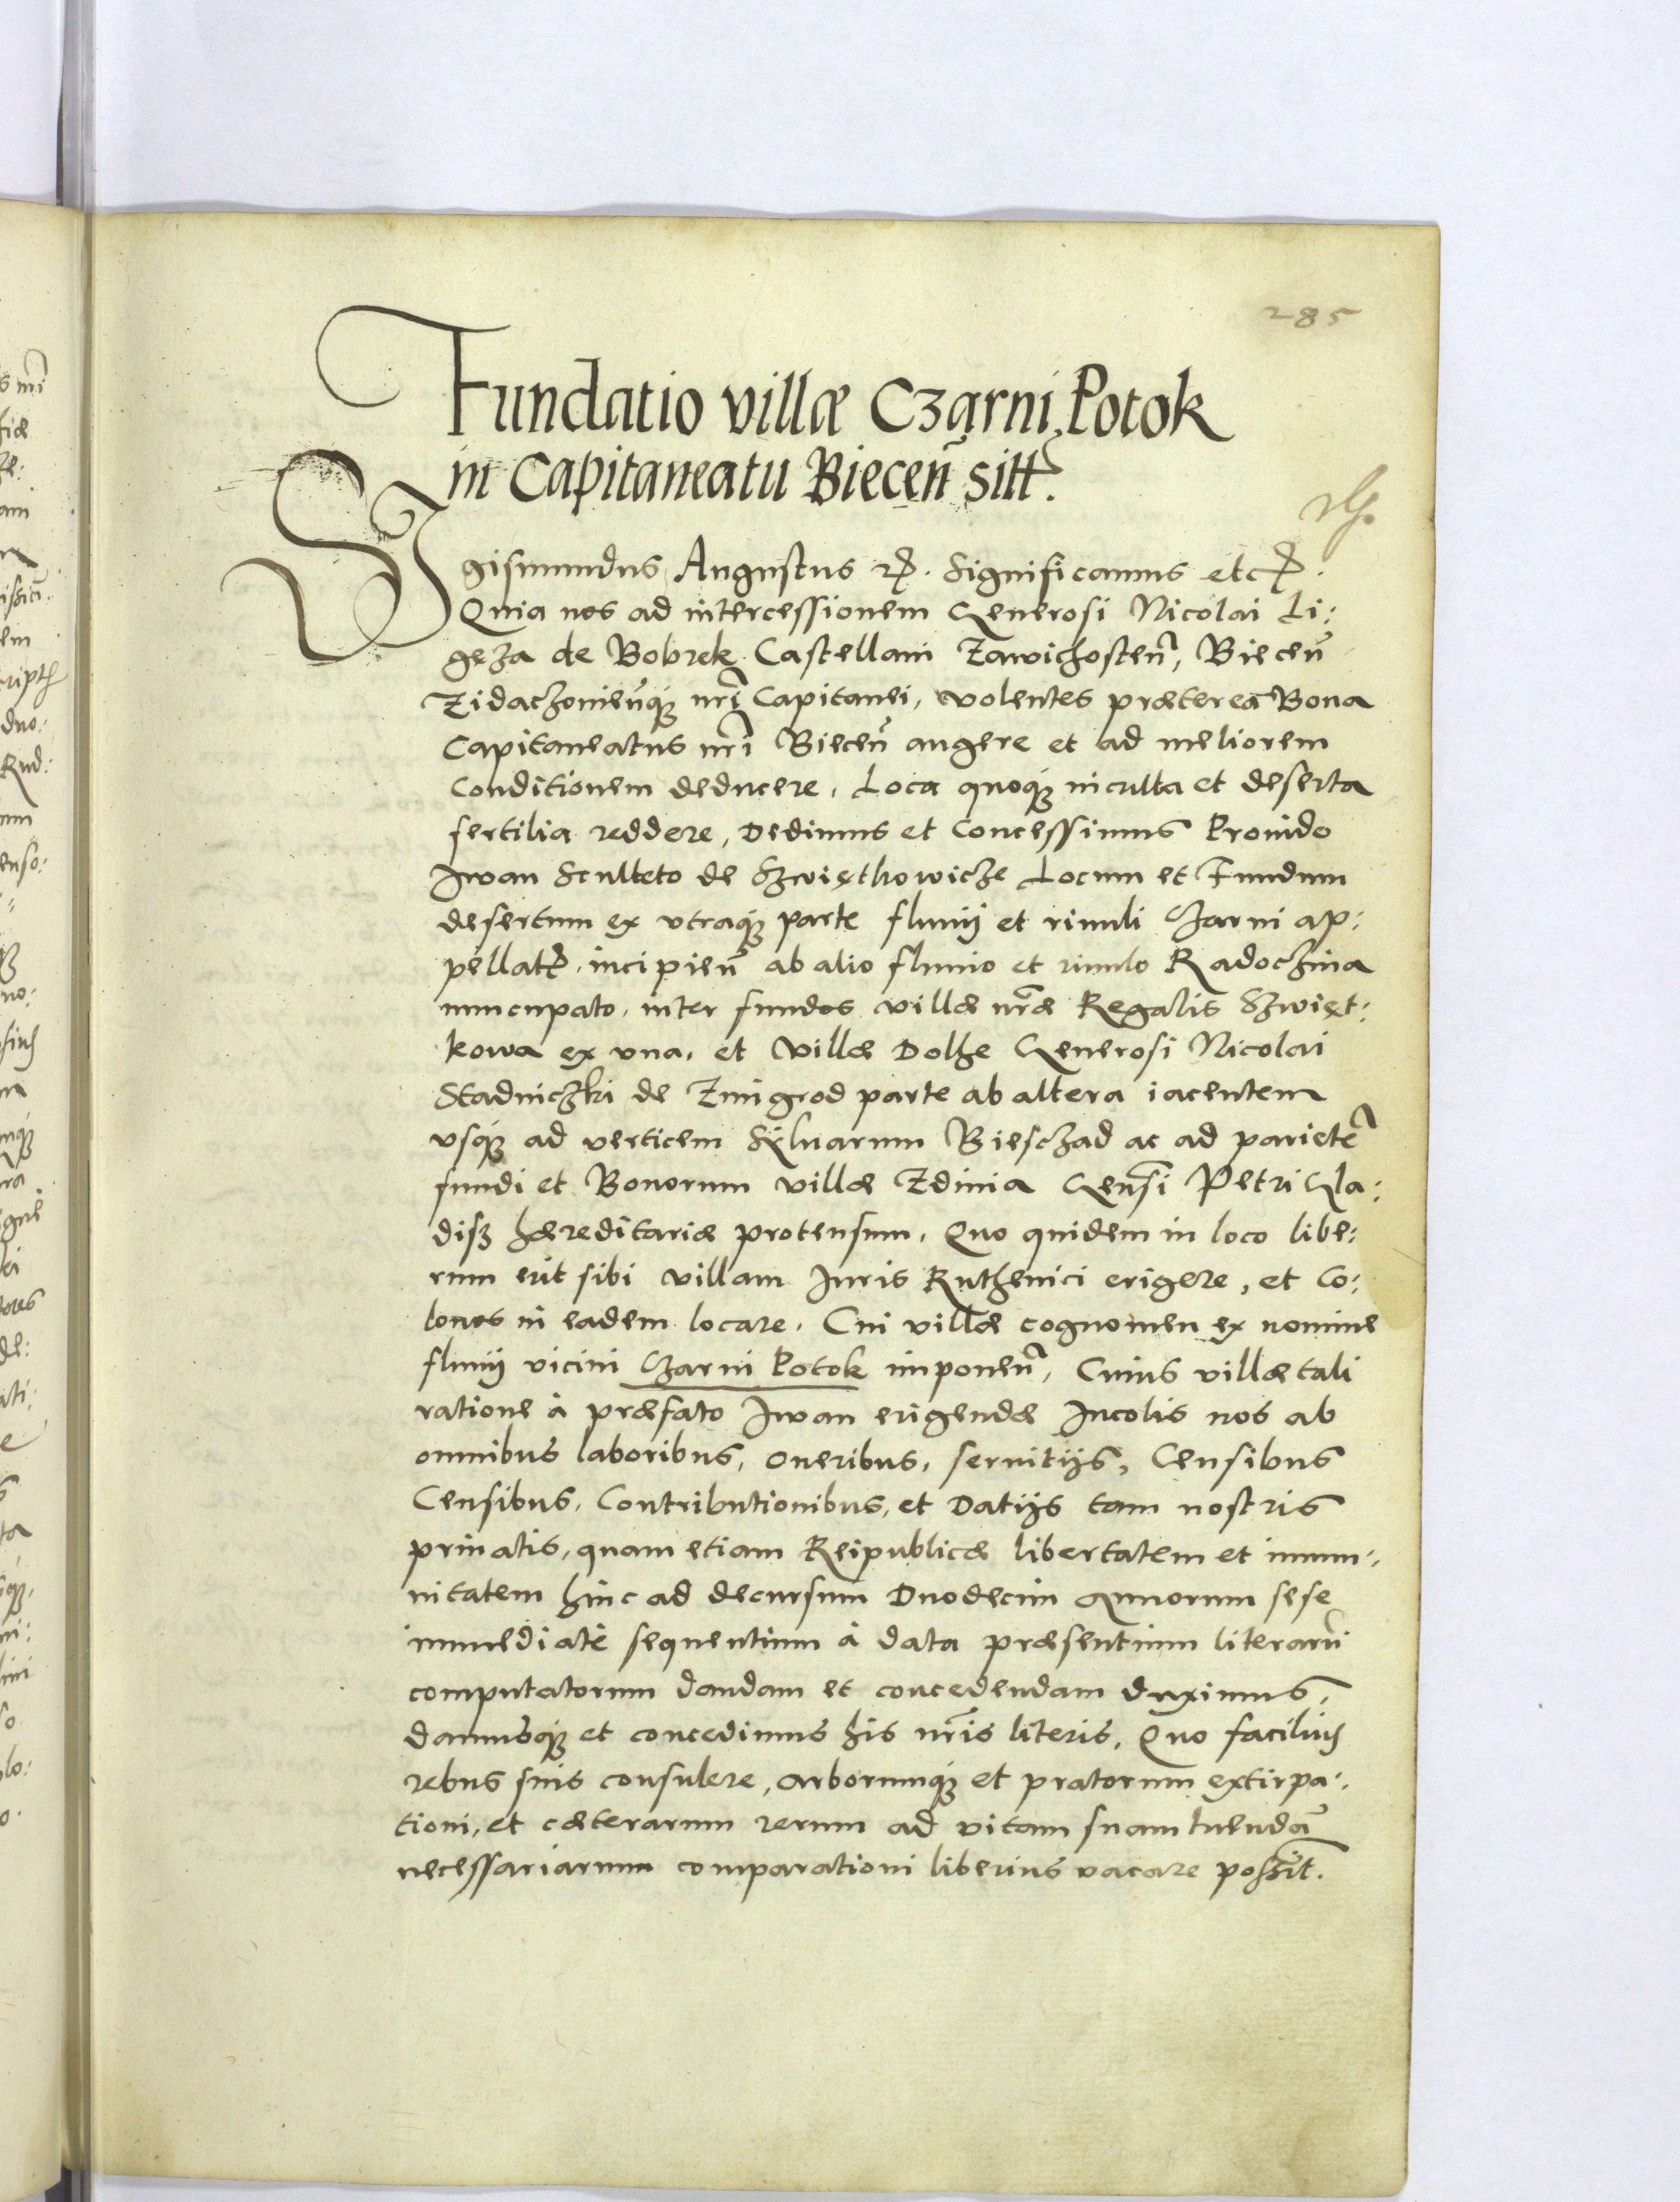 285
Fundatio villæ Czarni Potok
in Capitaneatu Biecen̄ sitt.
Sigismundus Augustus etc. Significamus etc.
Quia nos ad intercessionem Generosi Nicolai Li:
geza de Bobrek Castellani Zawichosten̄, Biecen̄
Zidaczonien̄q; nr̄i Capitanei, volentes præterea Bona
Capitaneatus nr̄i Biecen̄ augere et ad meliorem
Conditionem deducere, Loca quoq; inculta et deserta
fertilia reddere, Dedimus et Concessimus Prouido
Iwan Sculteto de Szwięthowicze Locum et Fundum
desertum ex vtraq; parte fluuij et riuuli Czarni ap:
pellat̄, incipien̄ ab alio fluuio et riuulo Radoczina
nuncupato, inter fundos villæ nr̄æ Regalis Szwięt:
kowa ex vna, et villæ Dolhe Generosi Nicolai
Stadniczki de Zmigrod parte ab altera iacentem
vsq; ad verticem Sÿluarum Biesczad ac ad parietē
fundi et Bonorum villæ Zdinia Gensi Petri Gla:
disz hæreditariæ protensum, Quo quidem in loco libe:
rum erit sibi villam Iuris Ruthenici erigere, et Co:
lonos in eadem locare. Cui villæ cognomen ex nomine
fluuij vicini Czarni Potok imponen̄, Cuius villæ tali
ratione à præfato Iwan erigendæ Incolis nos ab
omnibus laboribus, oneribus, seruitijs, Censibus
Censibus, Contributionibus, et Datijs tam nostris
priuatis, quam etiam Reipublicæ libertatem et immu:
nitatem hinc ad decursum Duodecim annorum sese
immediatè sequentium à data præsentium literarū
computatorum dandam et concedendam duximus,
damusq; et concedimus his nr̄is literis, Quo facilius
rebus suis consulere, arborumq; et pratorum extirpa:
tioni, et cæterarum rerum ad vitam suam tuendā
necessariarum comparationi liberius vacare possit.